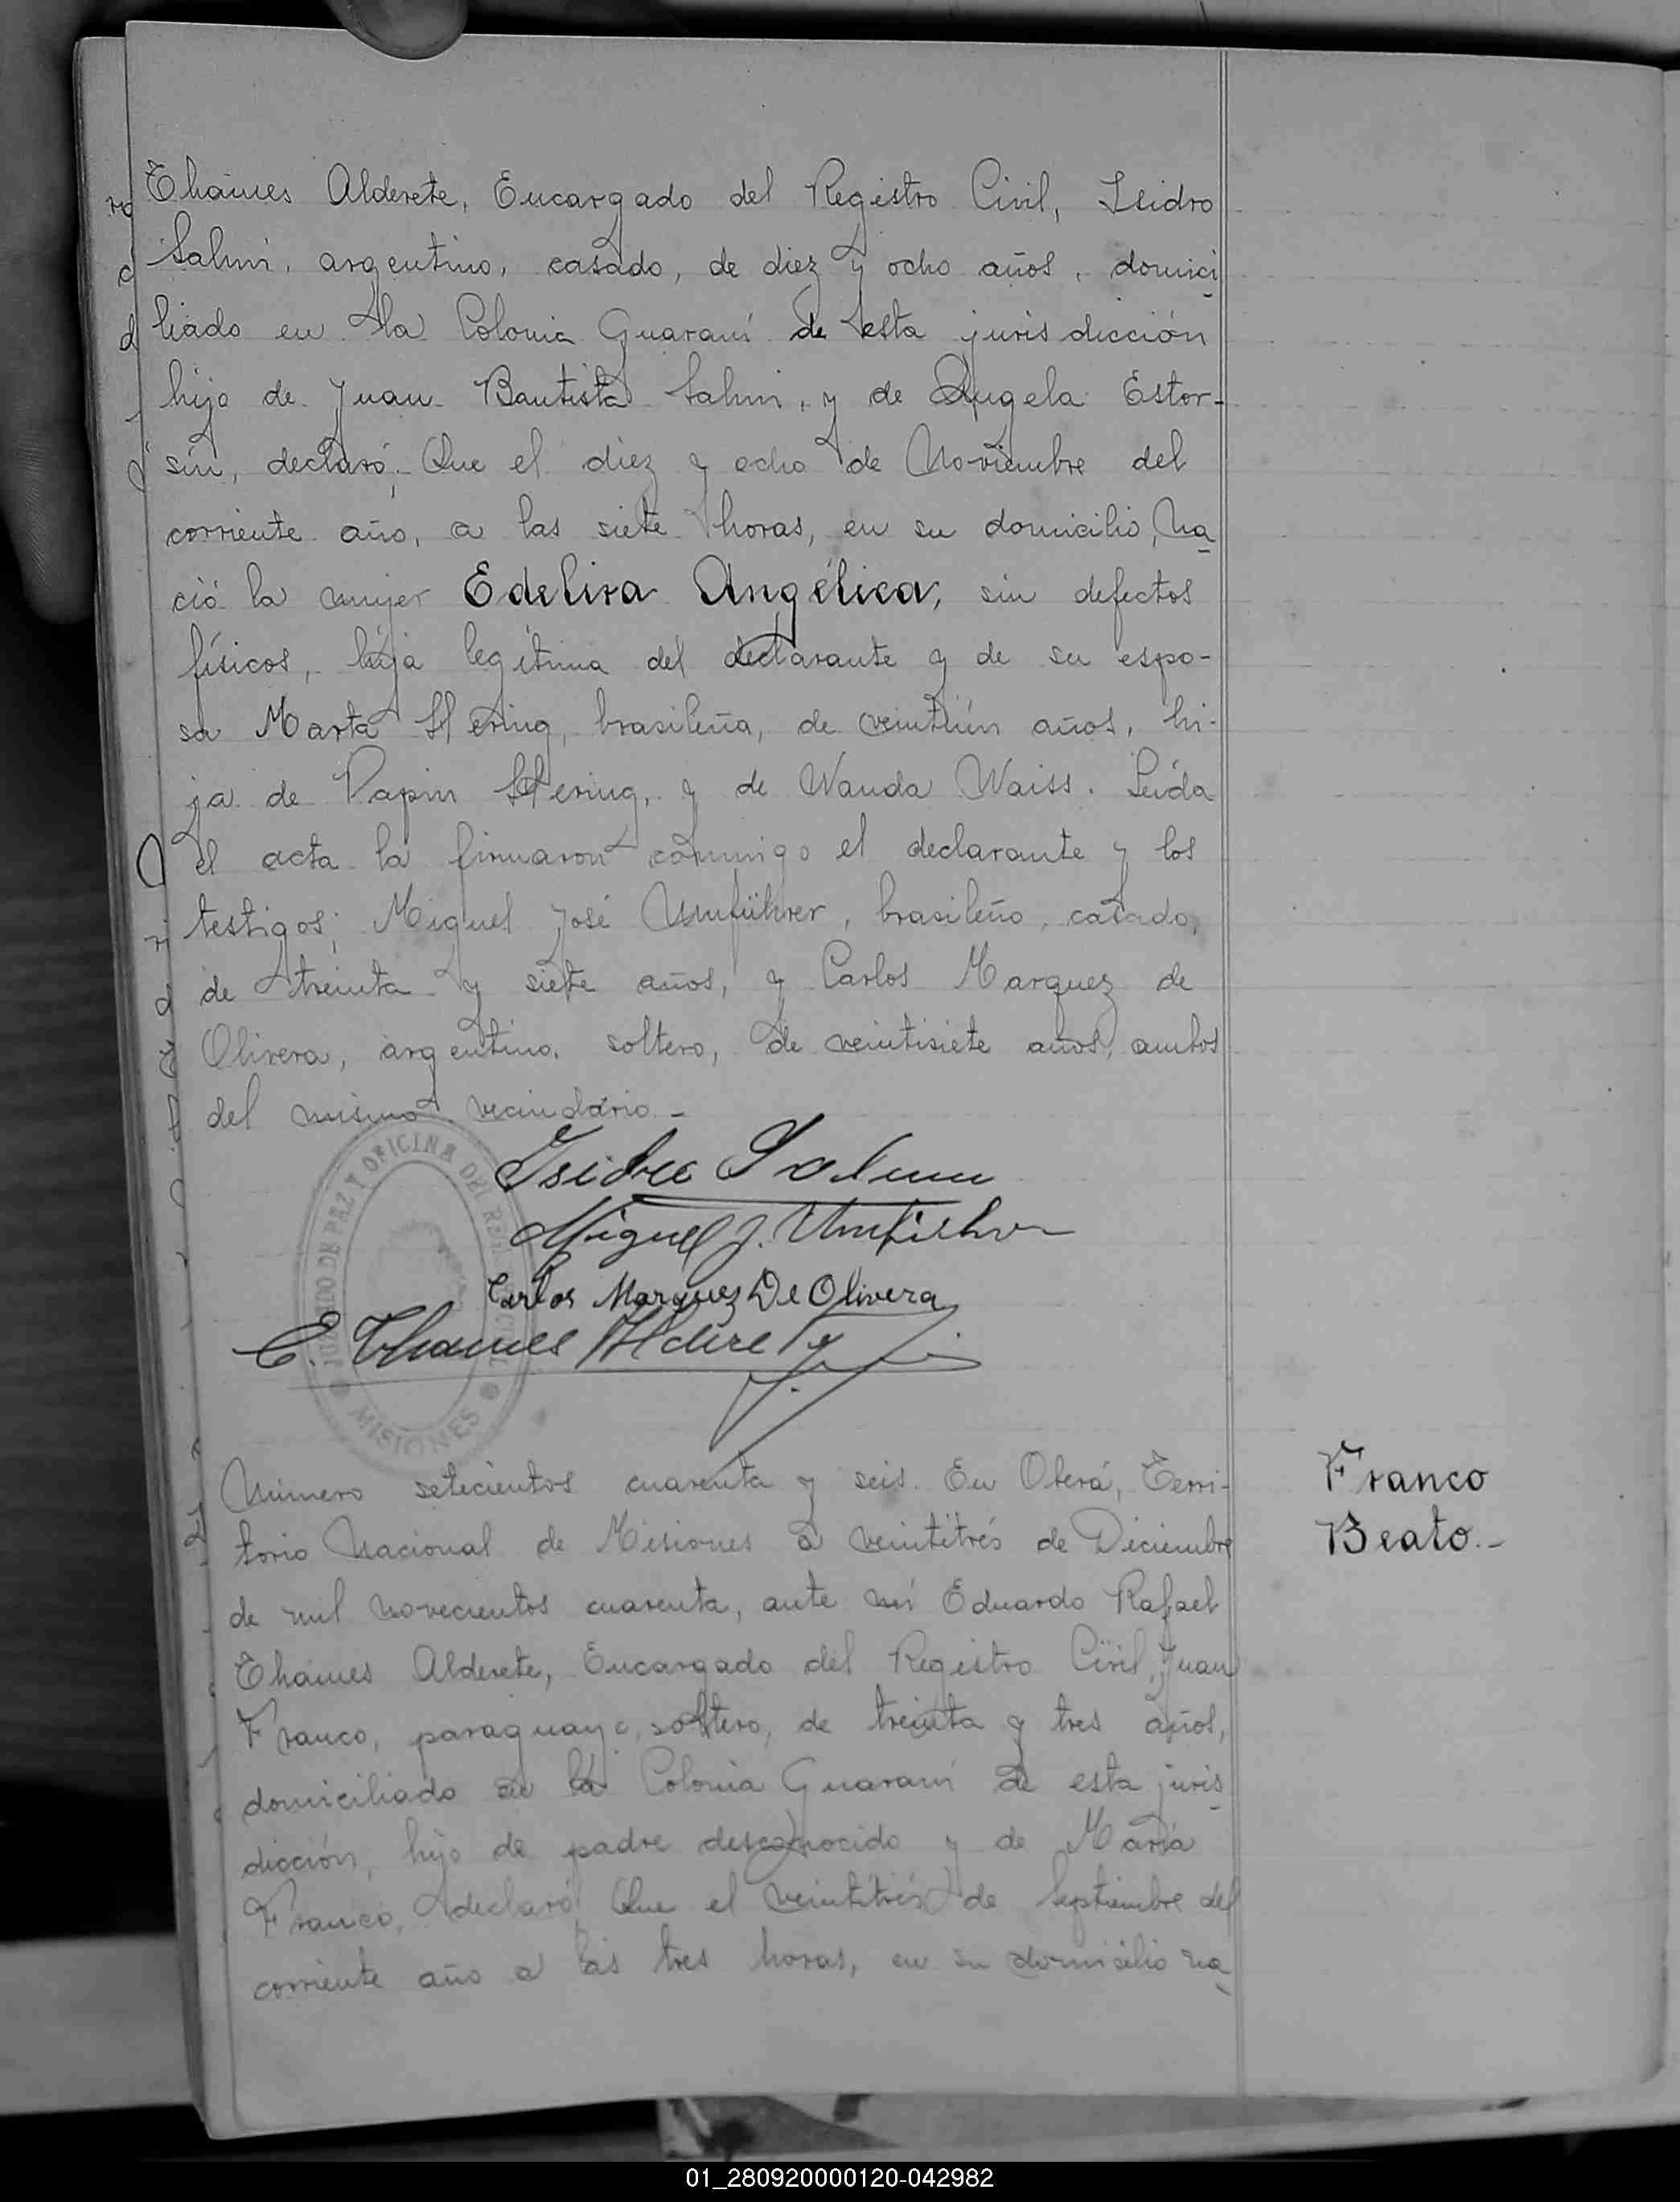 Thames Alderete, Encargado del Registro Civil, Isidro
Salum, argentino, casado, de diez y ocho años, domici
liado en la Colonia Guaraní de esta jurisdicción
hijo de Juan Bautista Salum, y de Angela Estor-
sin, declaró: Que el diez y ocho de Noviembre del
corriente año, a las siete horas, en su domicilio, na
ció la mujer Edelira Angélica, sin defectos
físicos, hija legítima del declarante y de su espo-
sa Marta Hering, brasileña, de veintiún años, hi-
ja de Papin Hering, y de Wanda Waiss. Leída
el acta la firmaron conmigo el declarante y los
testigos; Miguel José Umführer, brasileño, casado,
de treinta y siete años, y Carlos Marquez de
Olivera, argentino, soltero, de veintisiete años, ambos
del mismo vecindario.-
Isidro Salum
Miguel J.
Carlos Marquez De Olivera
E. Thames Alderete
JUZGADO DE PAZ Y OFICINA DEL
MISIONES
Franco
Beato.-
Número setecientos cuarenta y seis. En Oberá, Terri-
torio Nacional de Misiones a veintitrés de Diciembre
de mil novecientos cuarenta, ante mí Eduardo Rafael
Thames Alderete, Encargado del Registro Civil, Juan
Franco, paraguayo, soltero, de treinta y tres años,
domiciliado en la Colonia Guaraní de esta juris
dicción, hijo de padre desconocido y de María
Franco, declaró: Que el veintitrés de Septiembre del
corriente año a las tres horas, en su domicilio na
01_280920000120-042982